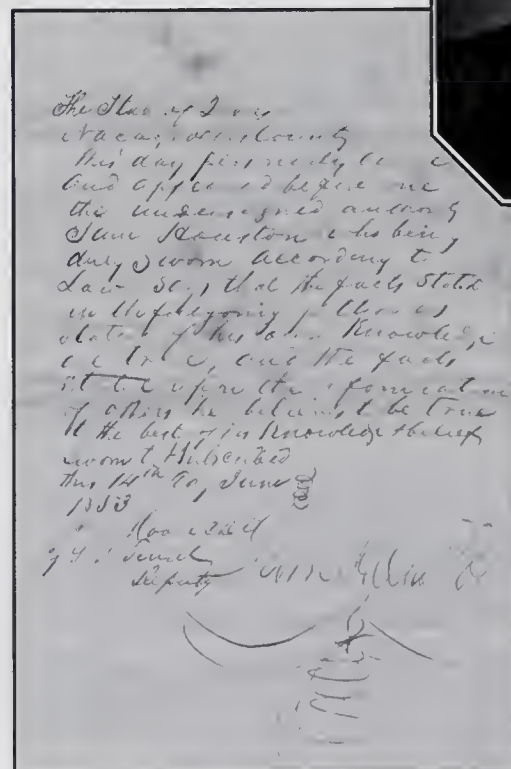 The State of Texas
Nacogdoches County
This day personally
and appeared before me
the undersigned authority
Sam Houston who being
duly sworn according to
Law Says that the facts Stated
in the foregoing as
stated of his own Knowledge
are true, and the facts
stated upon the information
of others he believes to be true
to the best of his Knowledge & belief
Sworn to & Subscribed
this 14th day June
1853
Deputy